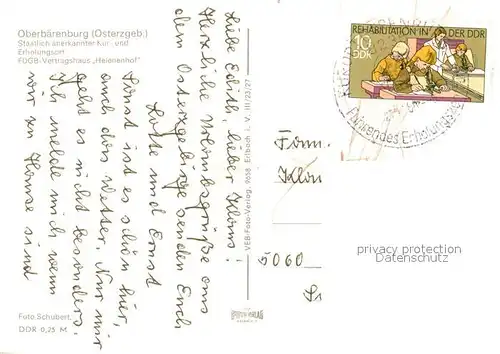 Oberbärenburg (Osterzgeb.)
Staatlich anerkannter Kur- und
Erholungsort
FDGB-Vertragshaus „Heidenhof"
Liebe Edith, lieber Klaus!
Herzliche Urlaubsgrüße aus
dem Osterzgebirge senden Euch
Lotte und Ernst
Sonst ist es schön hier,
auch das Wetter. Nur mir
geht es nicht besonders.
Ich melde mich wenn
wir zu Hause sind
Foto Schubert.
DDR 0,25 M
VEB-Foto-Verlag 9658 Erlbach i. V. III/23/27
REHABILITATION IN DER DDR
10
DDR
Fam.
Klau
5060
privacy protection
Datenschutz